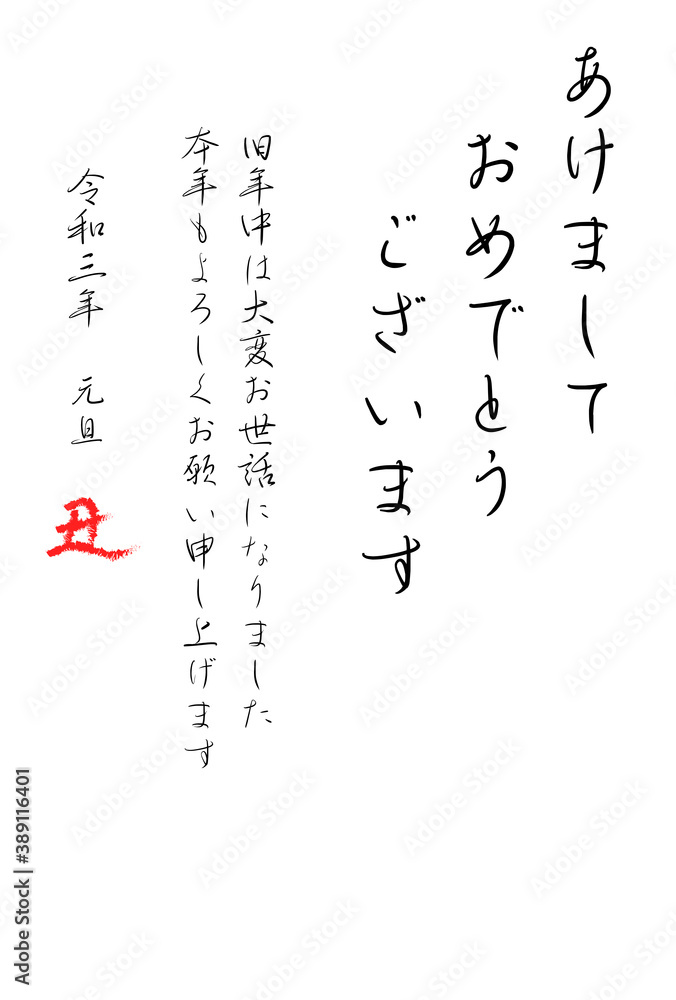 あけまして
おめでとう
ございます
旧年中は大変お世話になりました
本年もよろしくお願い申し上げます
令和三年 元旦
丑
Adobe Stock | #389116401